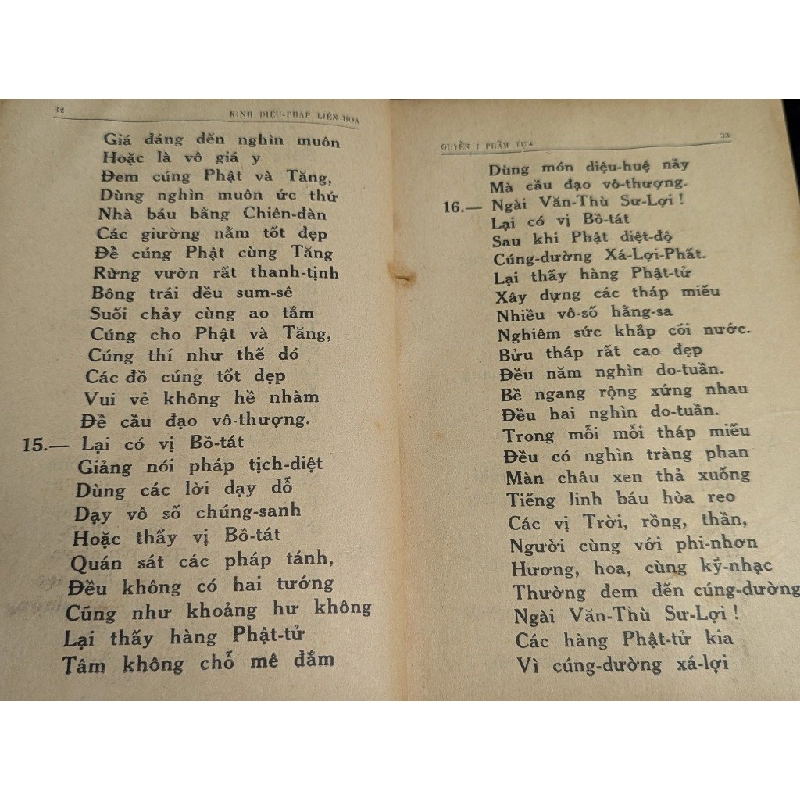 32
KINH DIỆU-PHÁP LIÊN-HOA
Giá đáng đến nghìn muôn
Hoặc là vô giá y
Đem cúng Phật và Tăng,
Dùng nghìn muôn ức thứ
Nhà báu bằng Chiên-đàn
Các giường nằm tốt đẹp
Để cúng Phật cùng Tăng
Rừng vườn rất thanh-tịnh
Bông trái đều sum-sê
Suối chảy cùng ao tắm
Cúng cho Phật và Tăng,
Cúng thí như thế đó
Các đồ cúng tốt đẹp
Vui vẻ không hề nhàm
Để cầu đạo vô-thượng.
15.— Lại có vị Bồ-tát
Giảng nói pháp tịch-diệt
Dùng các lời dạy dỗ
Dạy vô số chúng-sanh
Hoặc thấy vị Bồ-tát
Quán sát các pháp tánh,
Đều không có hai tướng
Cũng như khoảng hư không
Lại thấy hàng Phật-tử
Tâm không chỗ mê đắm
QUYỂN I PHẨM TỰA
33
Dùng món diệu-huệ này
Mà cầu đạo vô-thượng.
16.— Ngài Văn-Thù Sư-Lợi !
Lại có vị Bồ-tát
Sau khi Phật diệt-độ
Cúng-dường Xá-Lợi-Phất.
Lại thấy hàng Phật-tử
Xây dựng các tháp miếu
Nhiều vô-số hằng-sa
Nghiêm sức khắp cõi nước.
Bửu tháp rất cao đẹp
Đều năm nghìn do-tuần.
Bề ngang rộng xứng nhau
Đều hai nghìn do-tuần.
Trong mỗi mỗi tháp miếu
Đều có nghìn tràng phan
Màn châu xen thả xuống
Tiếng linh báu hòa reo
Các vị Trời, rồng, thần,
Người cùng với phi-nhơn
Hương, hoa, cùng kỹ-nhạc
Thường đem đến cúng-dường
Ngài Văn-Thù Sư-Lợi !
Các hàng Phật-tử kia
Vì cúng-dường xá-lợi